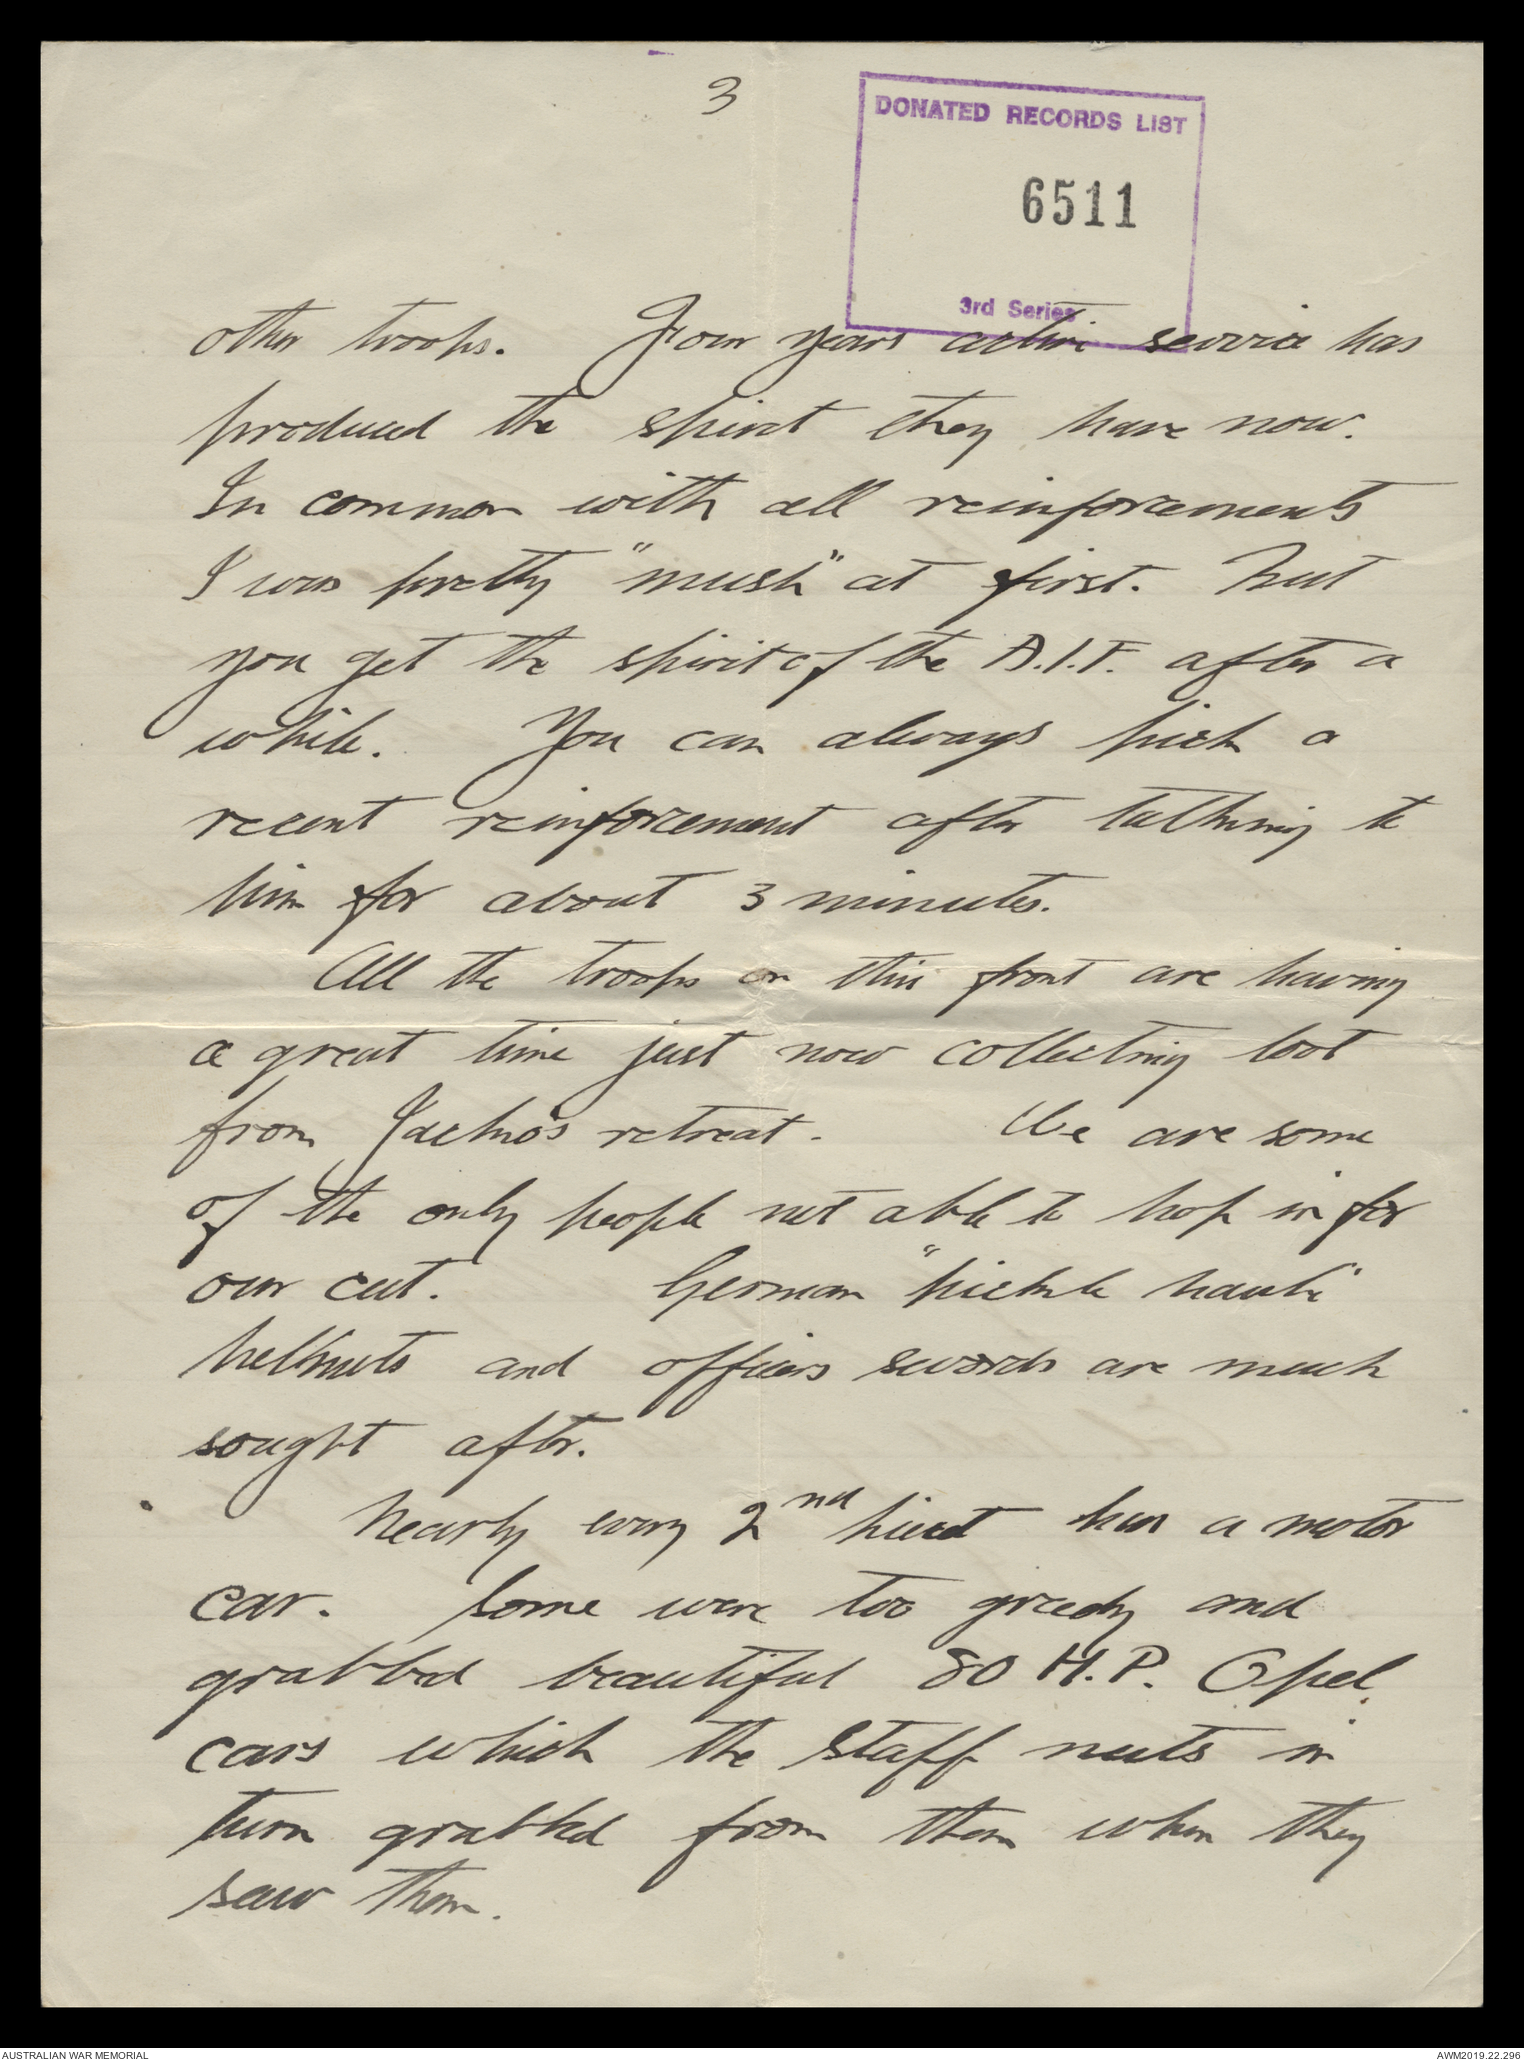 3
DONATED RECORDS LIST
6511
3rd Series
other troops. Four years active service has
produced the spirit they have now.
In common with all reinforcements
I was pretty "mush" at first. But
you get the spirit of the A.I.F. after a
while. You can always pick a
recent reinforcement after talking to
him for about 3 minutes.
All the troops on this front are having
a great time just now collecting loot
from Jacko's retreat. We are some
of the only people not able to hop in for
our cut. German "pickle haube"
helmets and officers swords are much
sought after.
Nearly every 2nd has a motor
car. Some were too greedy and
grabbed beautiful 80 H.P. Opel
cars which the staff nuts in
turn grabbed from them when they
saw them.
AUSTRALIAN WAR MEMORIAL
AWM2019.22.296